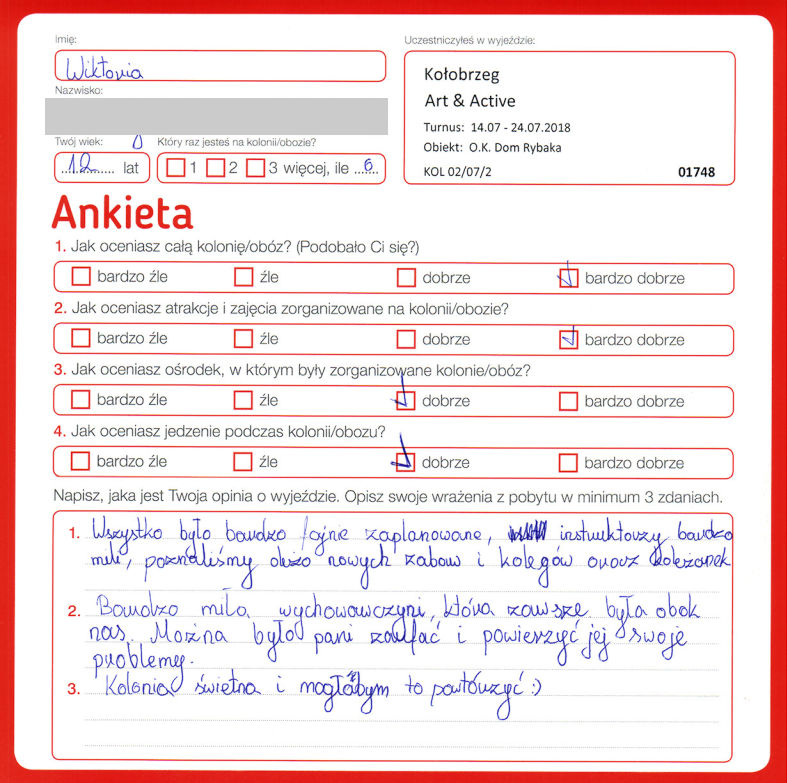 Imię:
Wiktoria
Nazwisko:
Twój wiek:
12 lat
Który raz jesteś na kolonii/obozie?
1 2 3 więcej, ile 6
Uczestniczyłeś w wyjeździe:
Kołobrzeg
Art & Active
Turnus: 14.07 - 24.07.2018
Obiekt: O.K. Dom Rybaka
KOL 02/07/2 01748
Ankieta
1. Jak oceniasz całą kolonię/obóz? (Podobało Ci się?)
bardzo źle źle dobrze bardzo dobrze
2. Jak oceniasz atrakcje i zajęcia zorganizowane na kolonii/obozie?
bardzo źle źle dobrze bardzo dobrze
3. Jak oceniasz ośrodek, w którym były zorganizowane kolonie/obóz?
bardzo źle źle dobrze bardzo dobrze
4. Jak oceniasz jedzenie podczas kolonii/obozu?
bardzo źle źle dobrze bardzo dobrze
Napisz, jaka jest Twoja opinia o wyjeździe. Opisz swoje wrażenia z pobytu w minimum 3 zdaniach.
1. Wszystko było bardzo fajnie zaplanowane, instruktorzy bardzo
mili, poznaliśmy dużo nowych zabaw i kolegów oraz koleżanek
2. Bardzo miła wychowawczyni, która zawsze była obok
nas. Można było pani zaufać i powierzyć jej swoje
problemy.
3. Kolonia świetna i mogłabym to powtórzyć :)